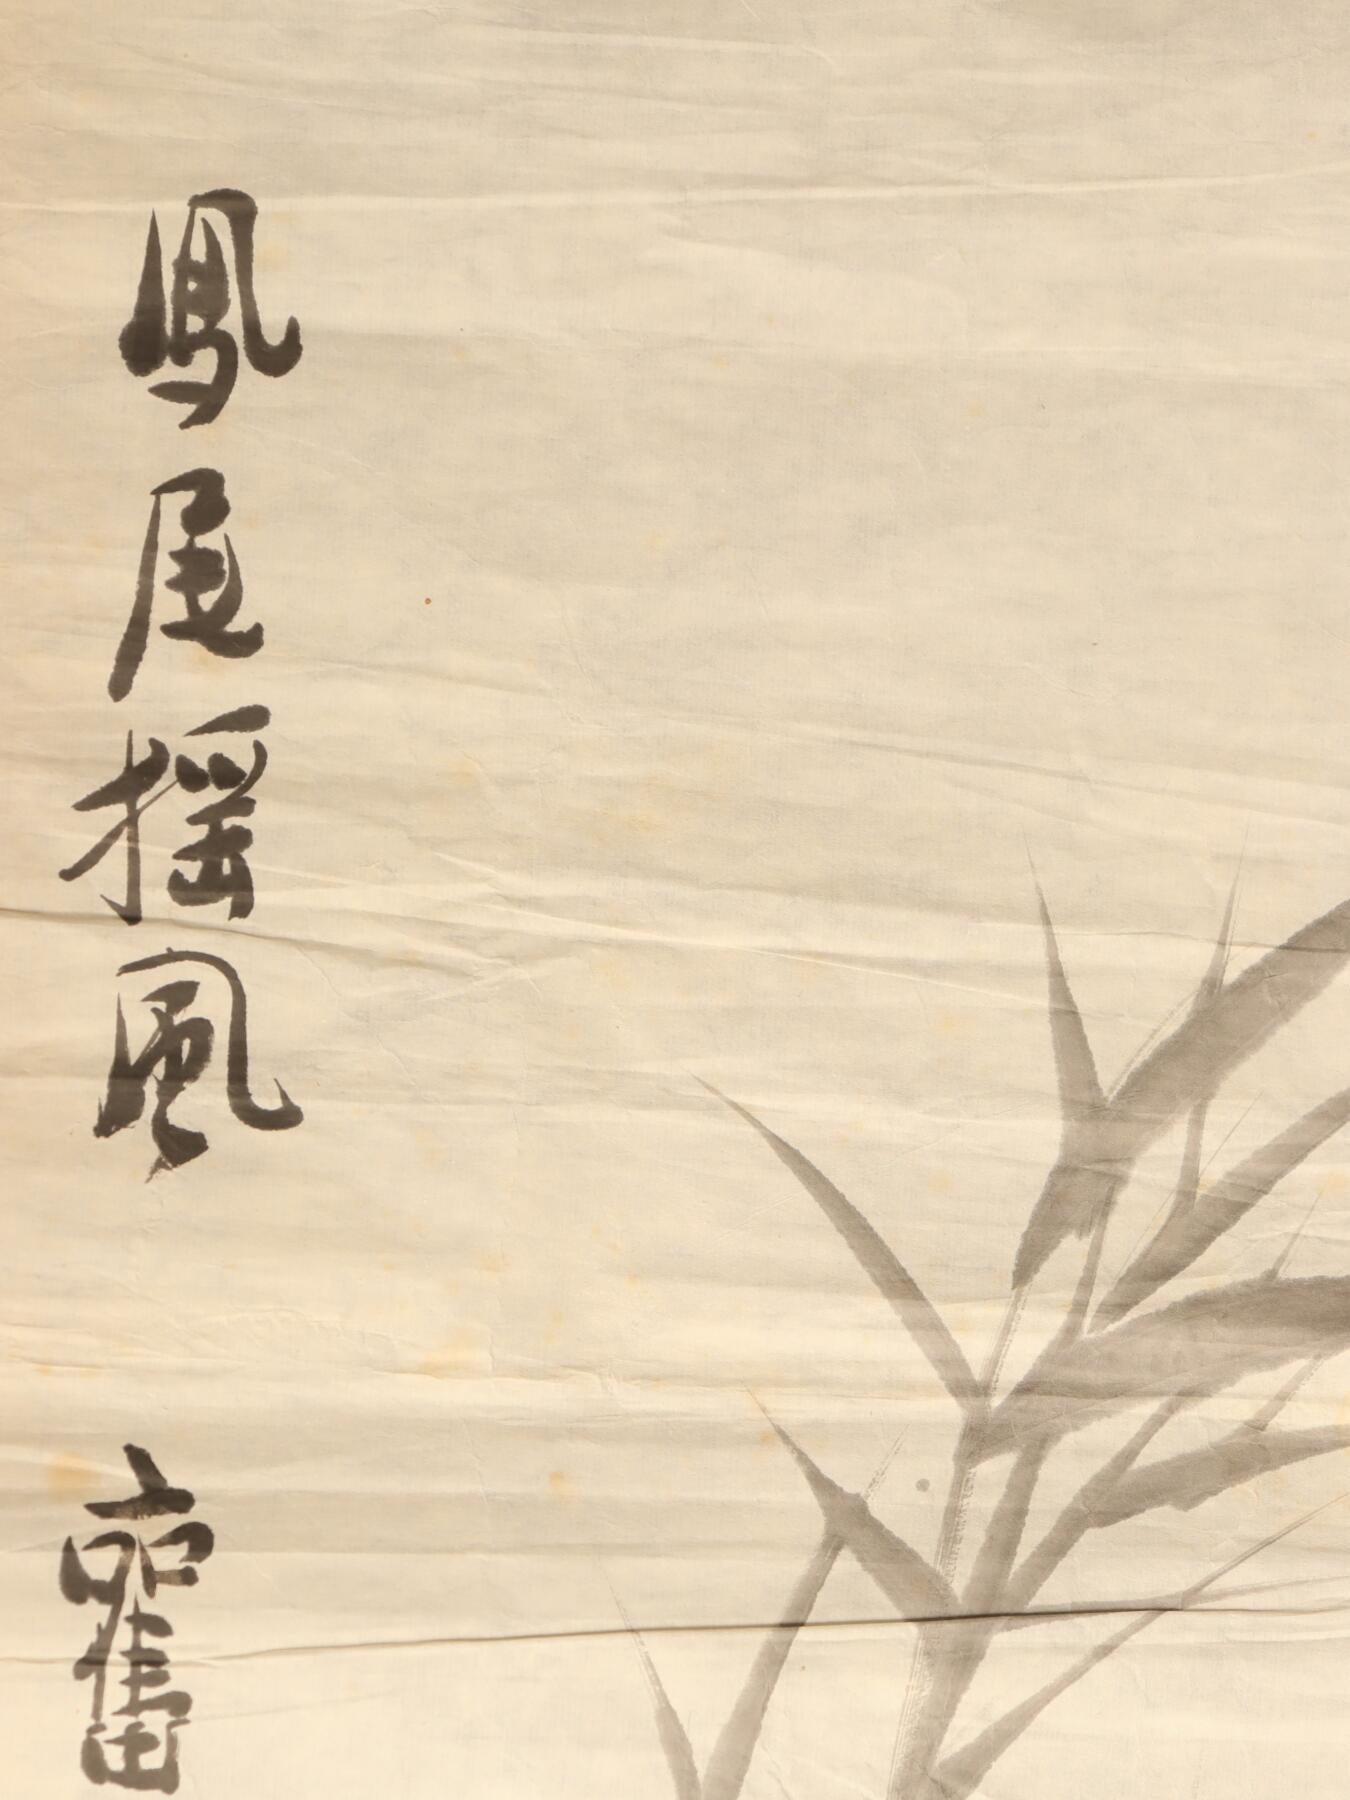 鳳尾搖風